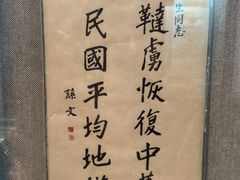 生同志
韃虜恢復中
民國平均地
孫文